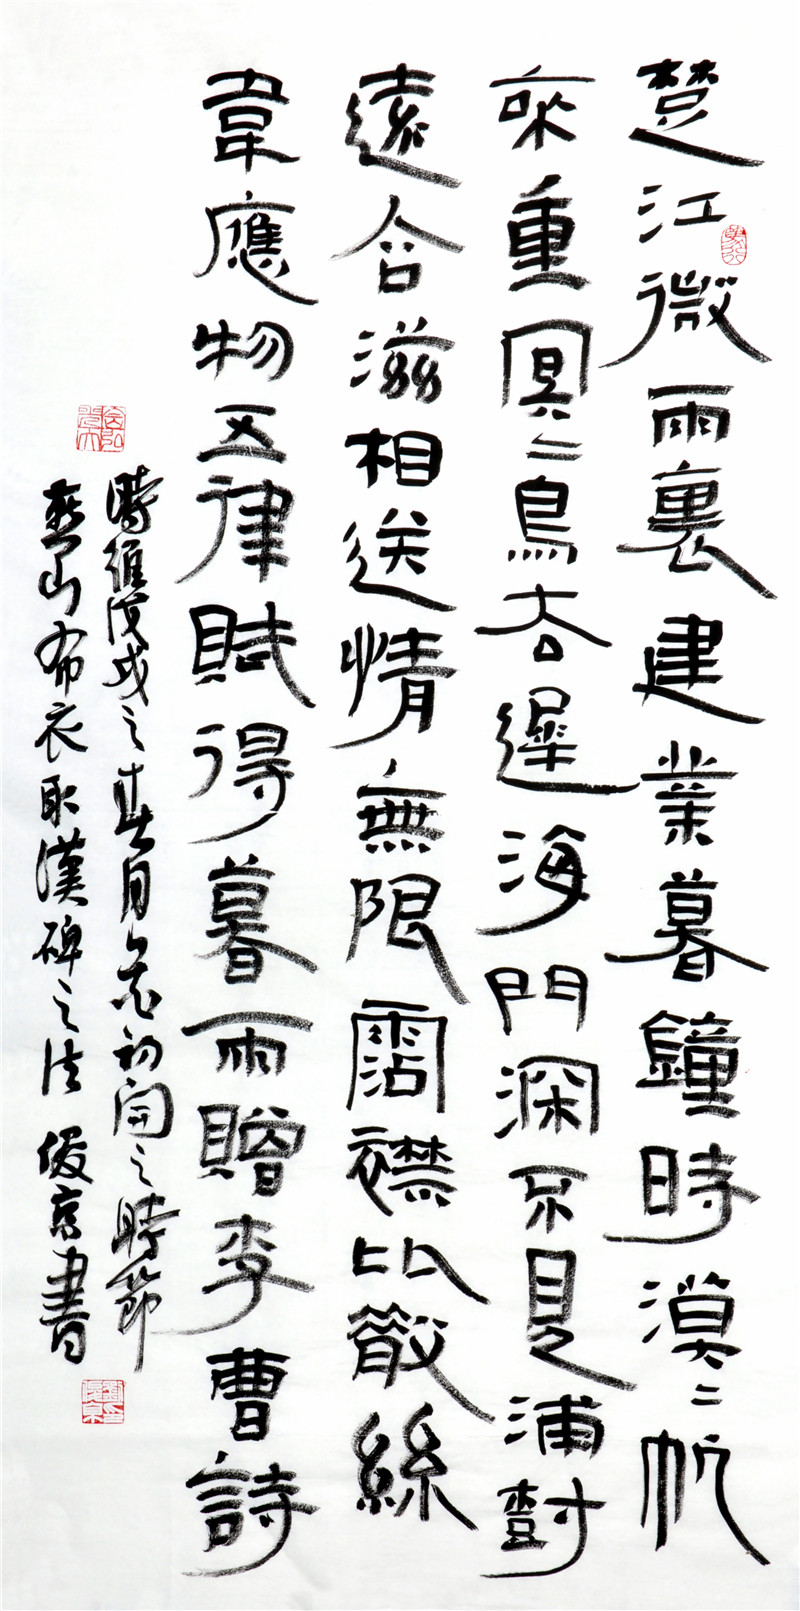 楚江微雨裏建業暮鐘時漠〻帆
來重冥〻鳥去遲海門深不見浦樹
遠含滋相送情無限霑襟比散絲
韋應物五律賦得暮雨贈李曹詩
時維戊戌之春月花初開之時節
燕山布衣取漢碑之法 俊京書